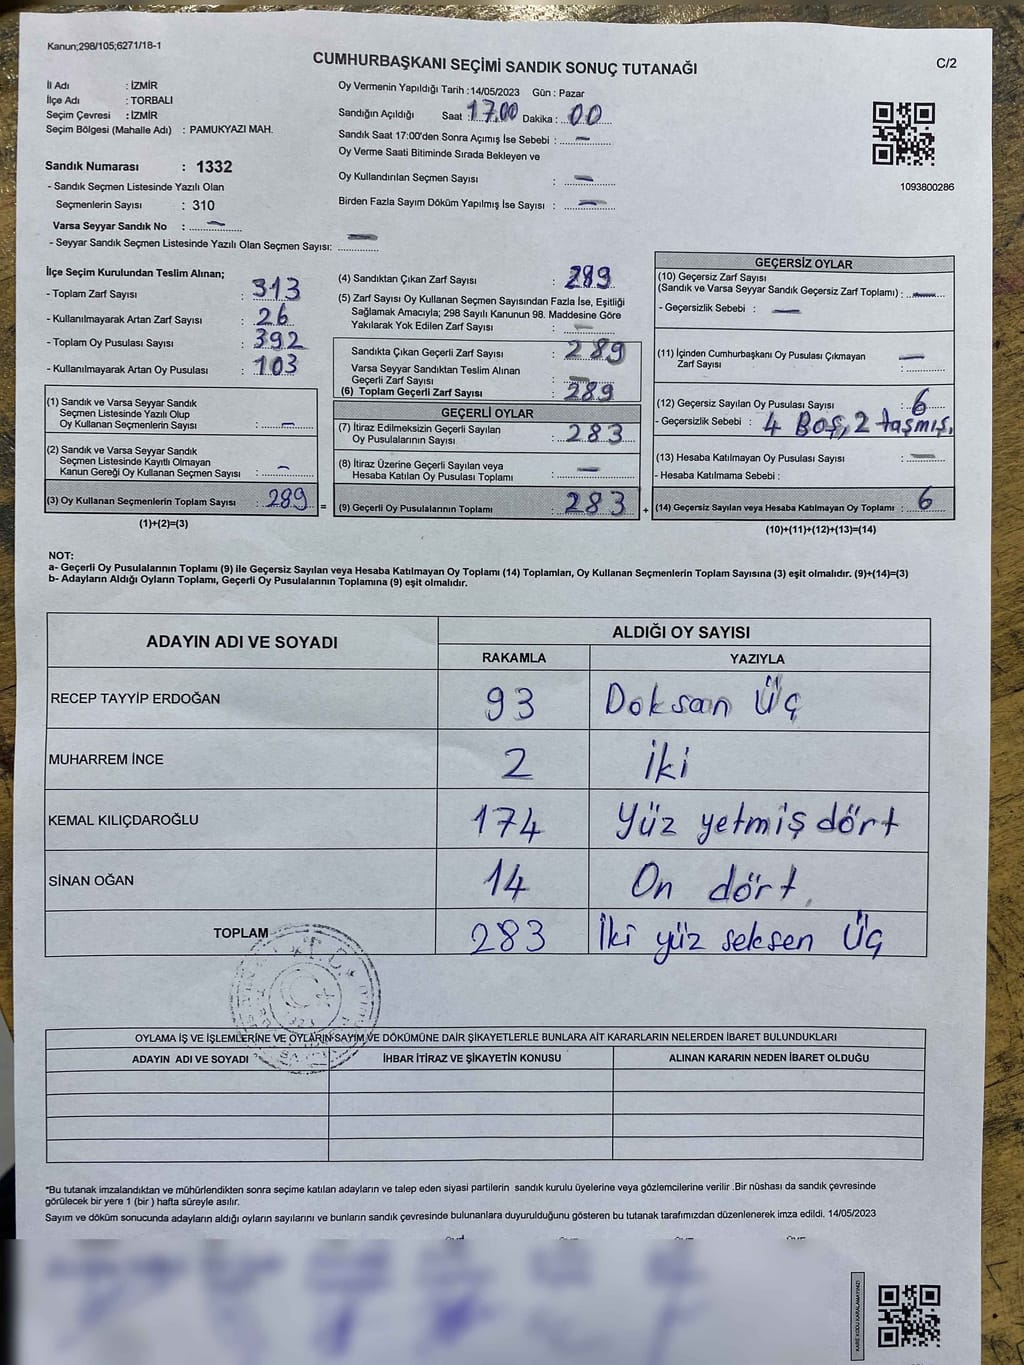 Kanun;298/105;6271/18-1
CUMHURBAŞKANI SEÇİMİ SANDIK SONUÇ TUTANAĞI
C/2
İl Adı : İZMİR
İlçe Adı : TORBALI
Seçim Çevresi : İZMİR
Seçim Bölgesi (Mahalle Adı) : PAMUKYAZI MAH.
Sandık Numarası : 1332
- Sandık Seçmen Listesinde Yazılı Olan
Seçmenlerin Sayısı : 310
Varsa Seyyar Sandık No : —
- Seyyar Sandık Seçmen Listesinde Yazılı Olan Seçmen Sayısı: —
Oy Vermenin Yapıldığı Tarih :14/05/2023 Gün : Pazar
Sandığın Açıldığı Saat : 17.00 Dakika : 00
Sandık Saat 17:00'den Sonra Açımış İse Sebebi : —
Oy Verme Saati Bitiminde Sırada Bekleyen ve
Oy Kullandırılan Seçmen Sayısı : —
Birden Fazla Sayım Döküm Yapılmış İse Sayısı : —
1093800286
İlçe Seçim Kurulundan Teslim Alınan;
- Toplam Zarf Sayısı : 313
- Kullanılmayarak Artan Zarf Sayısı : 26
- Toplam Oy Pusulası Sayısı : 392
- Kullanılmayarak Artan Oy Pusulası : 103
(1) Sandık ve Varsa Seyyar Sandık
Seçmen Listesinde Yazılı Olup
Oy Kullanan Seçmenlerin Sayısı : —
(2) Sandık ve Varsa Seyyar Sandık
Seçmen Listesinde Kayıtlı Olmayan
Kanun Gereği Oy Kullanan Seçmen Sayısı : —
(3) Oy Kullanan Seçmenlerin Toplam Sayısı : 289 =
(1)+(2)=(3)
(4) Sandıktan Çıkan Zarf Sayısı : 289
(5) Zarf Sayısı Oy Kullanan Seçmen Sayısından Fazla İse, Eşitliği
Sağlamak Amacıyla; 298 Sayılı Kanunun 98. Maddesine Göre
Yakılarak Yok Edilen Zarf Sayısı : —
Sandıkta Çıkan Geçerli Zarf Sayısı : 289
Varsa Sandıktan Teslim Alınan
Geçerli Zarf Sayısı : —
(6) Toplam Geçerli Zarf Sayısı : 289
GEÇERLİ OYLAR
(7) İtiraz Edilmeksizin Geçerli Sayılan
Oy Pusulalarının Sayısı : 283
(8) İtiraz Üzerine Geçerli Sayılan veya
Hesaba Katılan Oy Pusulası Toplamı : —
(9) Geçerli Oy Pusulalarının Toplamı : 283 +
GEÇERSİZ OYLAR
(10) Geçersiz Zarf Sayısı
(Sandık ve Varsa Seyyar Sandık Geçersiz Zarf Toplamı) : —
- Geçersizlik Sebebi : —
(11) İçinden Cumhurbaşkanı Oy Pusulası Çıkmayan
Zarf Sayısı : —
(12) Geçersiz Sayılan Oy Pusulası Sayısı : 6
- Geçersizlik Sebebi : 4 Boş, 2 taşmış.
(13) Hesaba Katılmayan Oy Pusulası Sayısı : —
- Hesaba Katılmama Sebebi :
(14) Geçersiz Sayılan veya Hesaba Katılmayan Oy Toplamı : 6
(10)+(11)+(12)+(13)=(14)
NOT:
a- Geçerli Oy Pusulalarının Toplamı (9) ile Geçersiz Sayılan veya Hesaba Katılmayan Oy Toplamı (14) Toplamları, Oy Kullanan Seçmenlerin Toplam Sayısına (3) eşit olmalıdır. (9)+(14)=(3)
b- Adayların Aldığı Oyların Toplamı, Geçerli Oy Pusulalarının Toplamına (9) eşit olmalıdır.
ADAYIN ADI VE SOYADI ALDIĞI OY SAYISI
RAKAMLA YAZIYLA
RECEP TAYYİP ERDOĞAN 93 Doksan Üç
MUHARREM İNCE 2 İki
KEMAL KILIÇDAROĞLU 174 Yüz yetmiş dört
SİNAN OĞAN 14 On dört.
TOPLAM 283 İki yüz seksen Üç
T.C.
OYLAMA İŞ VE İŞLEMLERİNE VE OYLARIN SAYIM VE DÖKÜMÜNE DAİR ŞİKAYETLERLE BUNLARA AİT KARARLARIN NELERDEN İBARET BULUNDUKLARI
ADAYIN ADI VE SOYADI İHBAR İTİRAZ VE ŞİKAYETİN KONUSU ALINAN KARARIN NEDEN İBARET OLDUĞU
*Bu tutanak imzalandıktan ve mühürlendikten sonra seçime katılan adayların ve talep eden siyasi partilerin sandık kurulu üyelerine veya gözlemcilerine verilir .Bir nüshası da sandık çevresinde
görülecek bir yere 1 (bir ) hafta süreyle asılır.
Sayım ve döküm sonucunda adayların aldığı oyların sayılarını ve bunların sandık çevresinde bulunanlara duyurulduğunu gösteren bu tutanak tarafımızdan düzenlenerek imza edildi. 14/05/2023